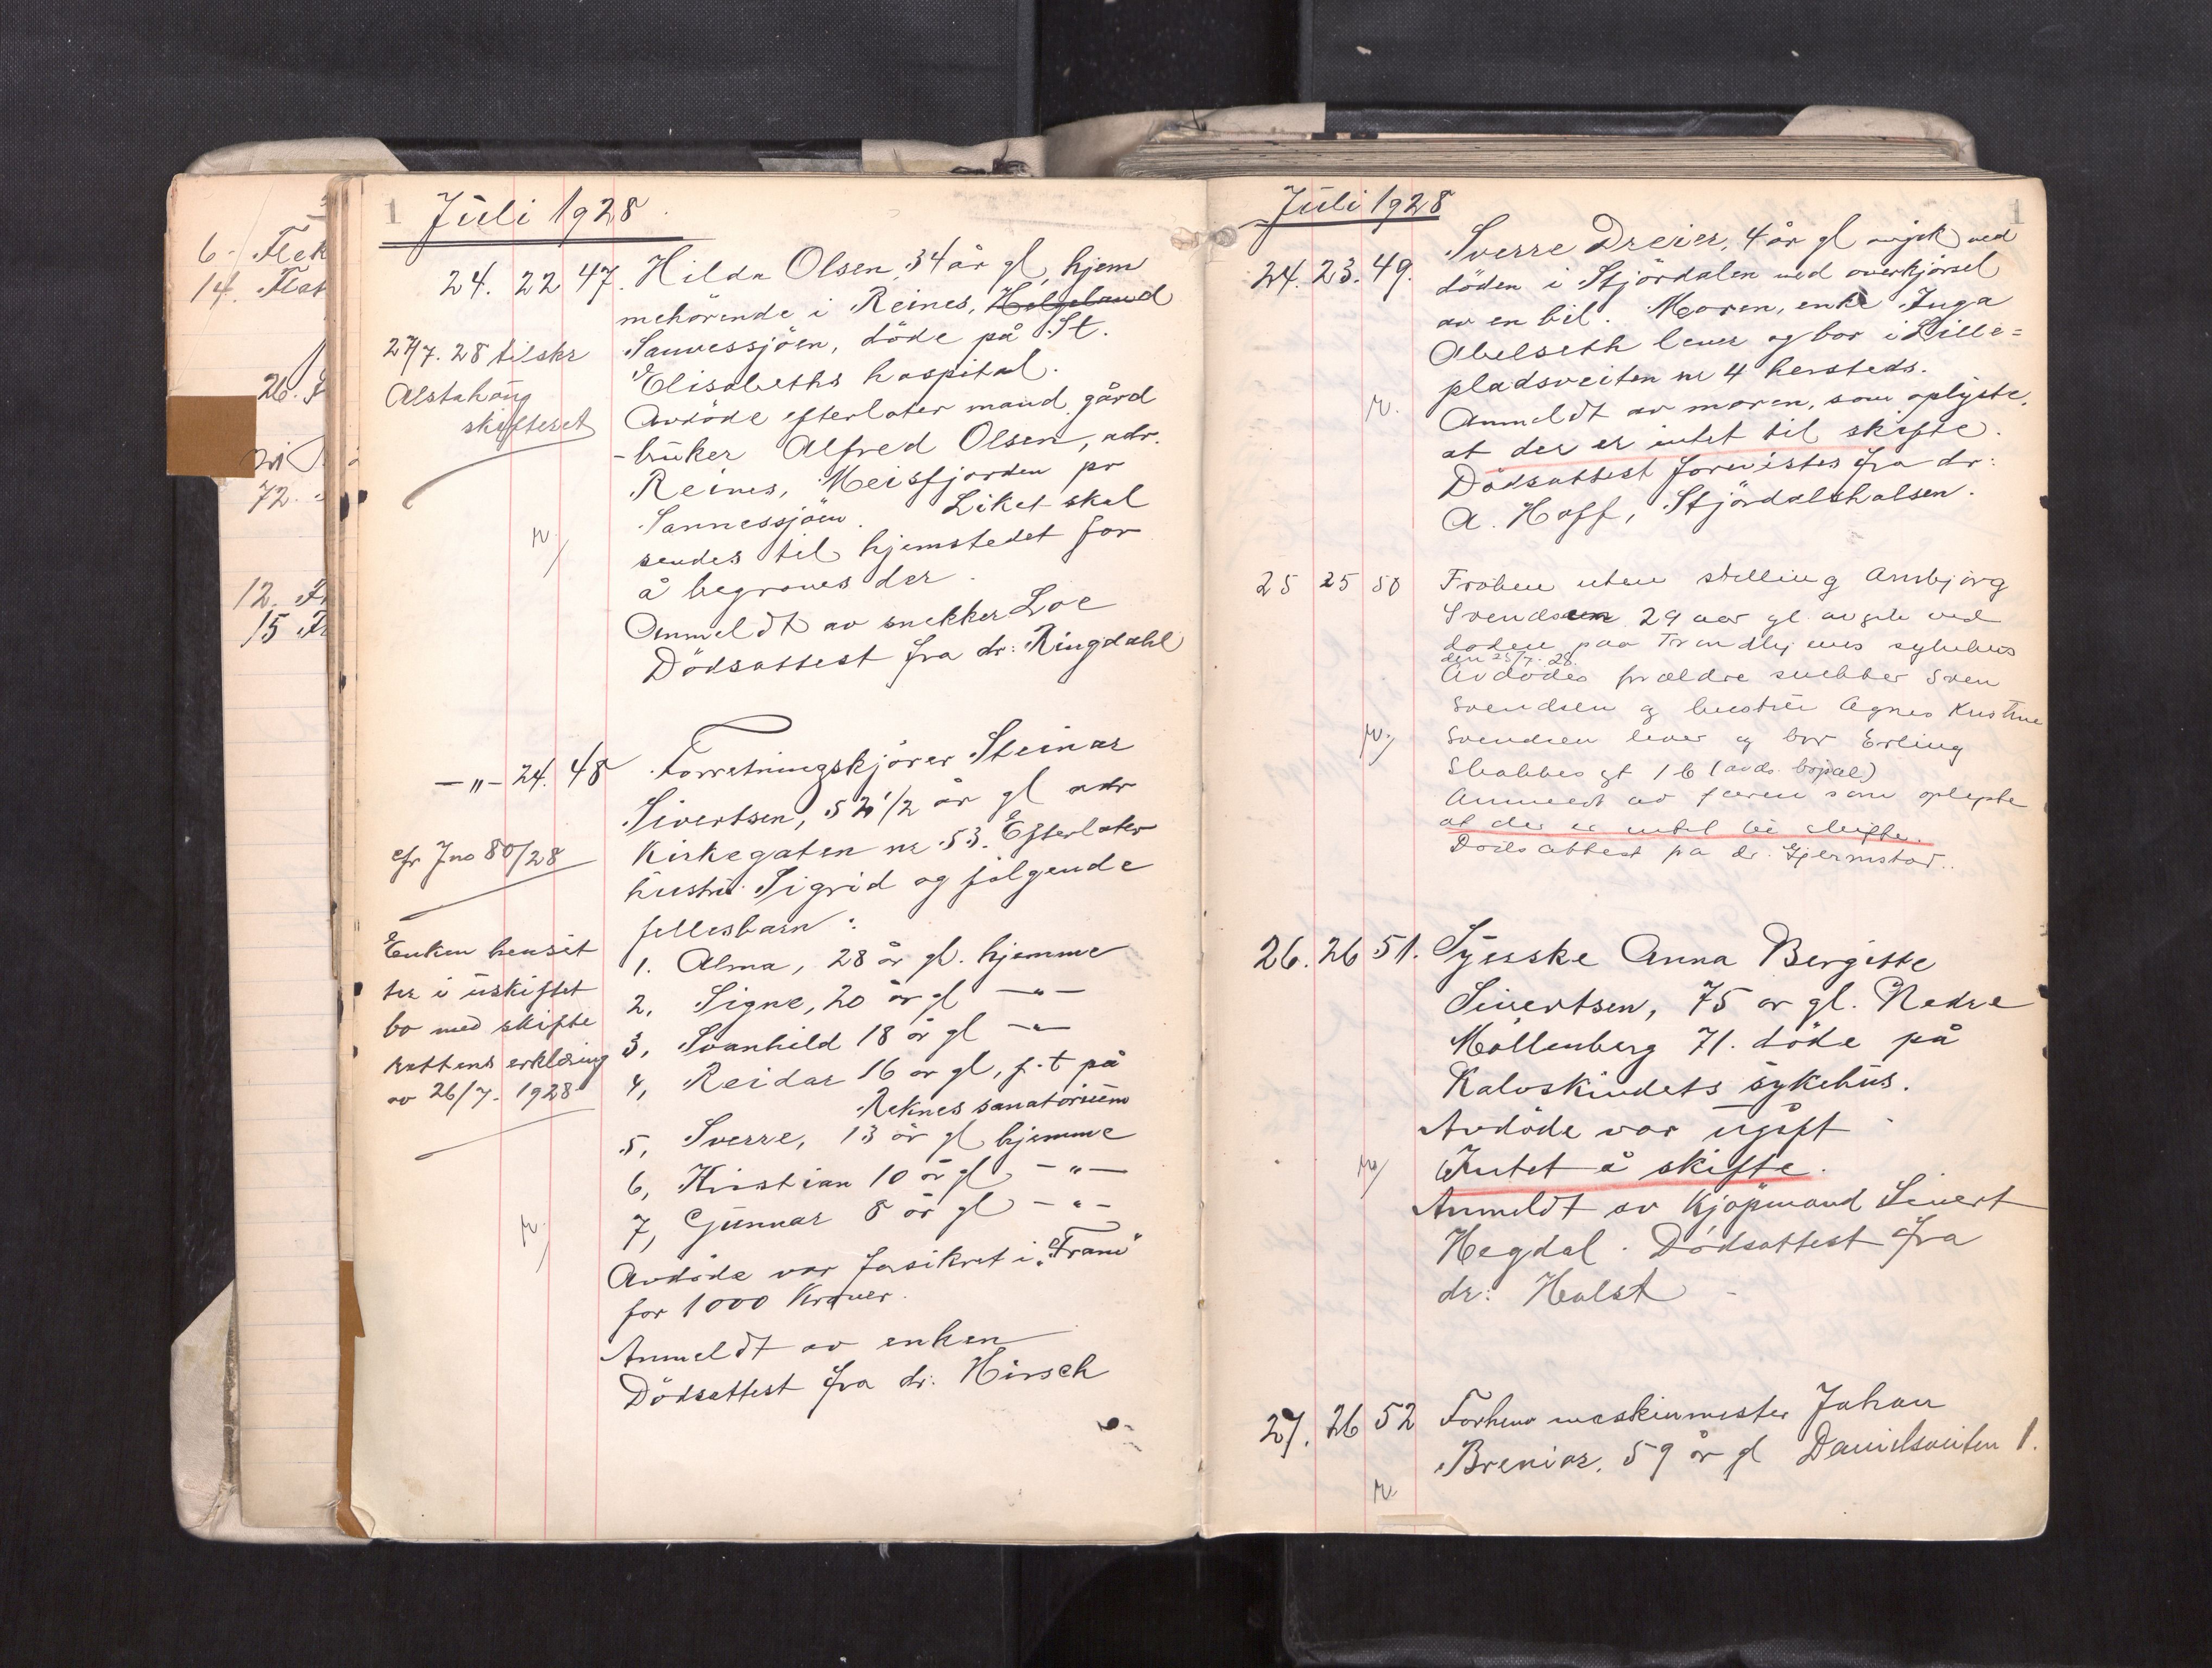 6 -
14.
26.
72.
12.
15
1 Juli 1928.
24. 22 47. Hilda Olsen, 34 år gl, hjem
mehörende i Reines, Helgeland
Sannessjöen, döde på St.
Elisabeths hospital.
Avdöde efterlater mand gård
-bruker Alfred Olsen, adr.
Reines, Meisfjorden pr
Sannessjöen. Liket skal
sendes til hjemstedet for
å begraves der.
Anmeldt av snekker Loe
Dödsattest fra dr: Ringdahl
27/7. 28 tilskr
Alstahaug
skifteret
— " — 24. 48 Forretningskjörer Steinar
Sivertsen, 52 1/2 år gl adr
Kirkegaten nr 53. Efterlater
hustru Sigrid og fölgende
fellesbarn:
1. Alma, 28 år gl. hjemme
2, Signe, 20 år gl — " —
3, Svanhild 18 år gl — " —
4, Reidar 16 år gl, p.t på
Reknes sanatorium
5, Sverre, 13 år gl hjemme
6, Kristian 10 år gl — " —
7, Gunnar 8 år gl — " —
Avdöde var forsikret i "Fram"
for 1000 Kroner.
Anmeldt av enken
Dödsattest fra dr: Hirsch
cfr Jno 80/28
Enken hensit
ter i uskiftet
bo med skifte
rettens erklæring
av 26/7. 1928
Juli 1928 1
24. 23. 49. Sverre Dreier, 4 år gl avgik ved
döden i Stjördalen ved overkjörsel
av en bil. Moren, enke Inga
Abelseth lever og bor i Lille=
pladsveiten nr 4 hersteds.
Anmeldt av moren, som oplyste,
at der er intet til skifte.
Dödsattest forevistes fra dr:
A. Hoff, Stjördalshalsen.
25 25 50 Fröken uten stilling Arnbjörg
Svendsen 29 aar gl. avgik ved
döden paa Trondhjems sykehus
den 25/7. 28.
Avdödes forældre snekker Sven
Svendsen og hustru Agnes Kristine
Svendsen lever og bor Erling
Skakkes gt 1 b (avds. bopæl)
Anmeldt av faren som oplyste
at der er intet til skifte.
Dödsattest fra dr. Gjermstad.
26. 26 51. Syerske Anna Bergitte
Sivertsen, 75 år gl. Nedre
Möllenberg 71. döde på
Kalvskindets sykehus.
Avdöde var ugift
Intet å skifte.
Anmeldt av Kjöpmand Sivert
Hegdal. Dödsattest fra
dr: Holst
27. 26 52 Forhenv maskinmester Johan
Brenier, 59 år gl Danielsveiten 1.